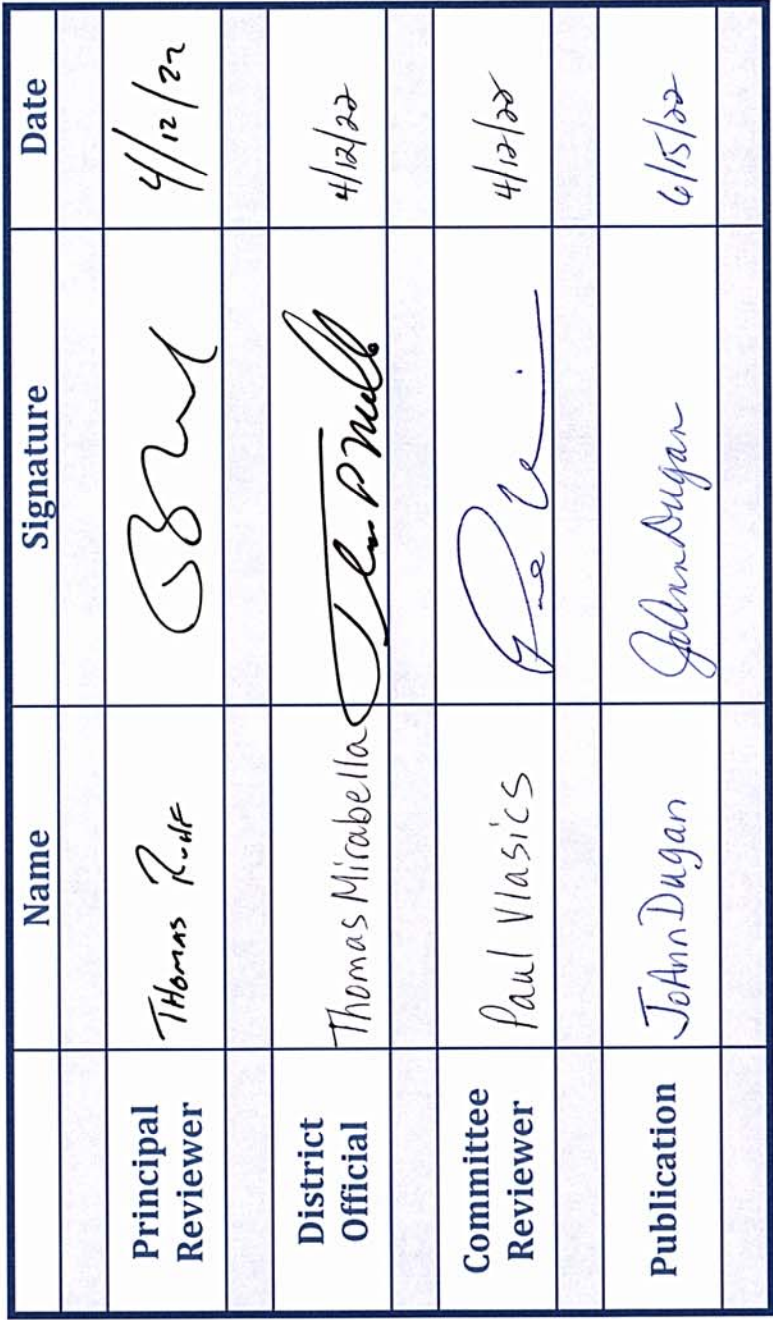 Name Signature Date
Principal Reviewer THOMAS RUHF 4/12/22
District Official Thomas Mirabella 4/12/22
Committee Reviewer Paul Vlasics 4/12/22
Publication JoAnn Dugan JoAnn Dugan 6/15/22